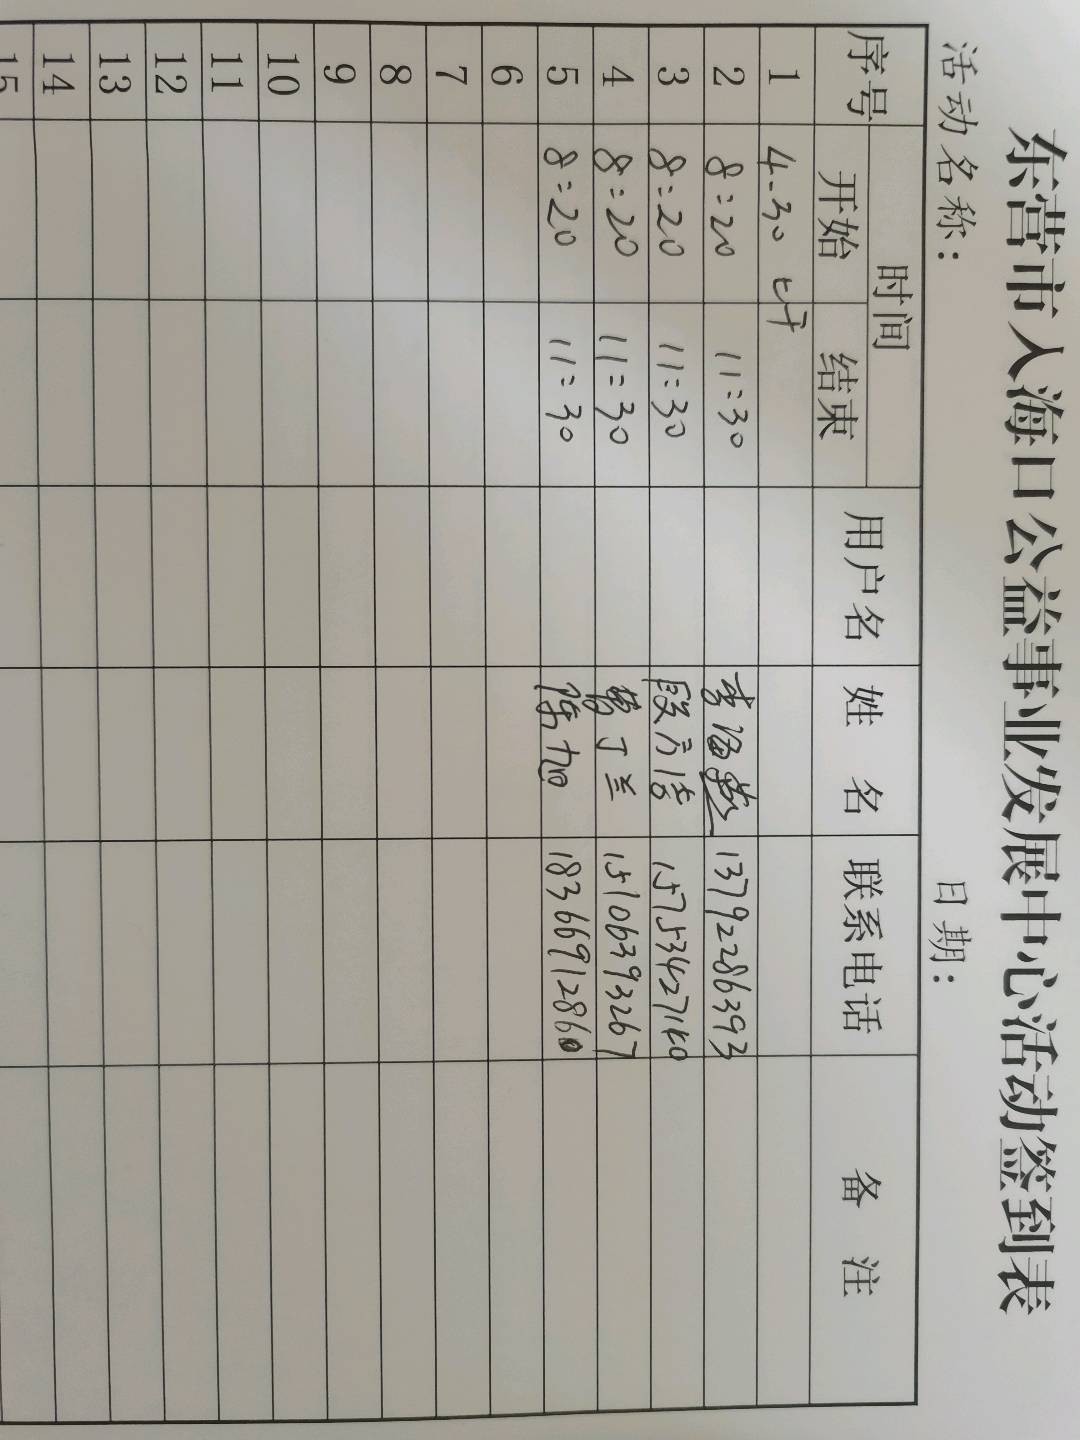 东营市入海口公益事业发展中心活动签到表
活动名称： 日期：
序号 时间 用户名 姓 名 联系电话 备 注
开始 结束
1 4-30 上午
2 8:20 11:30 13792286393
3 8:20 11:30 段方洁
4 8:20 11:30 15106393267
5 8:20 11:30 陈旭 18366912860
6
7
8
9
10
11
12
13
14
15